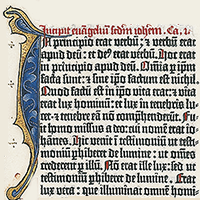 Incipit euangeliū scdm̄ iohēm. Ca. i.
In principio erat verbū: & verbū erat
apud deū: et de⁹ erat verbū. Hoc erat
in principio apud deum. Omīa p̲ ip̄m
facta sunt: & sine ip̄o factum est nichil.
Quod factū est in ip̄o vita erat: et vita
erat lux hominū: et lux in tenebris lucet:
et tenebre eā nō cōprehenderūt. Fuit
homo missus a deo: cui nomē erat io-
hānes. Hic venit ī testimoniū ut testi-
moniū p̲hiberet de lumine: ut om̄es
crederent p̲ illū. Nō erat ille lux: sed ut
testimoniū p̲hiberet de lumine. Erat
lux vera: que illuminat omnem homi-